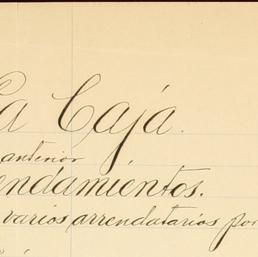 La Caja.
anterior
endamientos.
varios arrendatarios por